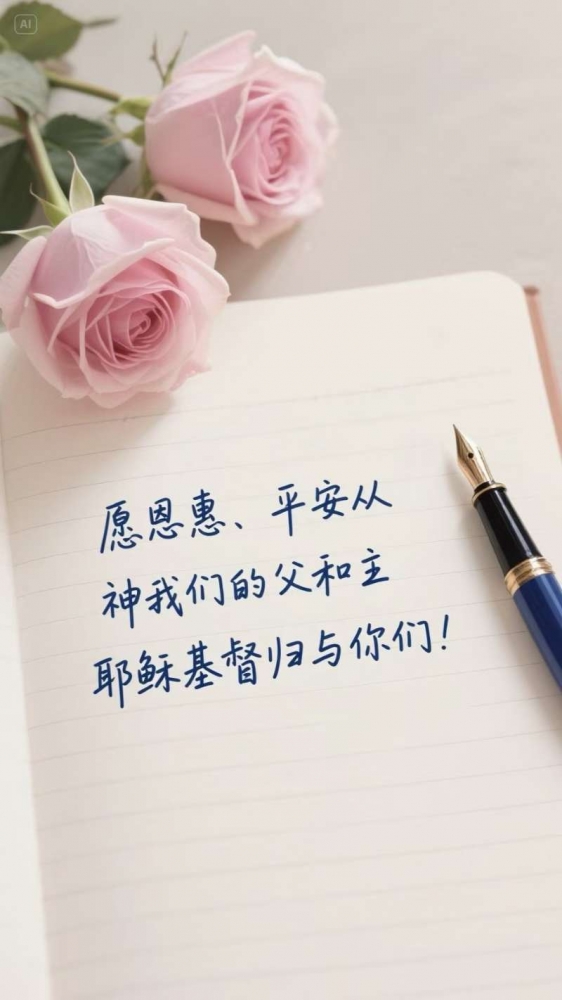 AI
愿恩惠、平安从
神我们的父和主
耶稣基督归与你们！